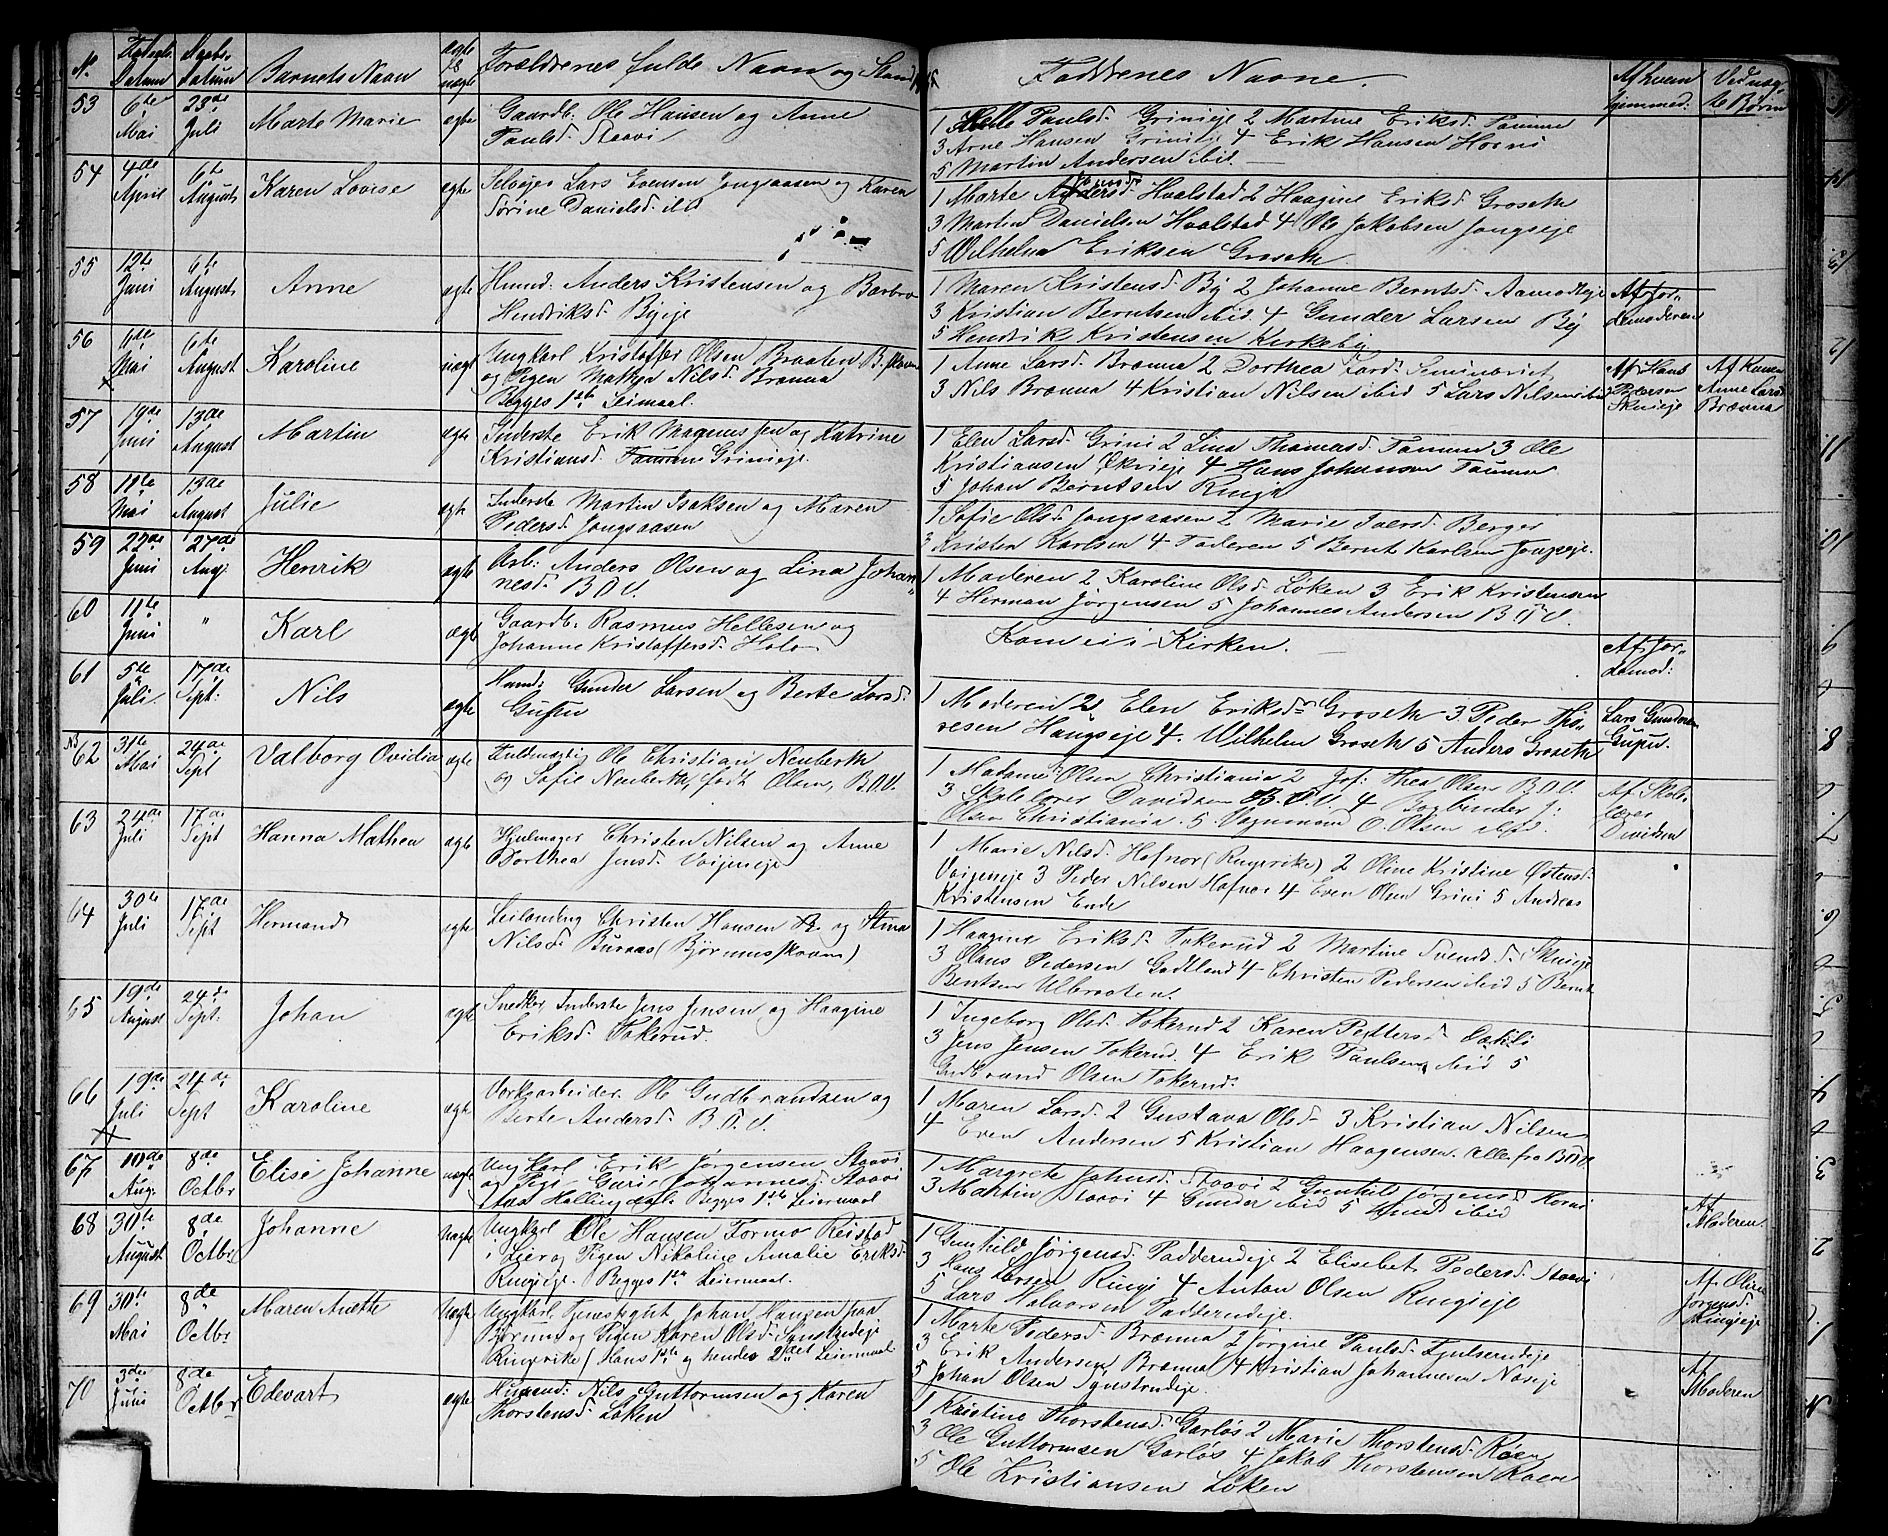 No.
Datum
Datum
Barnets Navn
ægte
uægte
Forældrenes fulde Navn og Stand
Faddrenes Navne.
Af hvem
hjemmed:
Ved uæg-
te Børn
53
6te Mai
23de Juli
Marte Marie
ægte
Gaardb. Ole Hansen og Anne
Paulsd. Staavi
1 Helle Paulsd. Grinieje 2 Martine Eriksd. Tanum
3 Arne Hansen Grinieje 4 Erik Hansen Horni
5 Martin Andersen ibid
54
4de April
6te August
Karen Lovise
ægte
Selvejer Lars Evensen Jongsaasen og Karen
Sørine Danielsd. ibd
1 Marte Hvalstad 2 Haagine Eriksd. Groseth
3 Martin Danielsen Hvalstad 4 Ole Jakobsen Jongseje
5 Wilhelm Eriksen Groseth
55
12te Juni
6te August
Anne
ægte
Husmd. Anders Kristensen og Barbro
Hendriksd. Byeje
1 Maren Kristensd. By 2 Johanne Berntsd. Aamodteje
3 Kristian Berntsen ibid. 4 Gunder Larsen By
5 Hendrik Kristensen Kirkeby
Af Jor-
demoderen
56
6de Mai
6te August
Karoline
uægt
Ungkarl Kristoffer Olsen Braaten B.skoven
og Pigen Mathea Nilsd. Brænna
Begges 1ste Leiermaal.
1 Anne Larsd. Brænna 2 Dorthea Larsd. Seminariet
3 Nils Brænna 4 Kristian Nilsen ibid 5 Lars Nilsen ibid
Af Hans
Pedersen
Skuieje
Af Konen
Anne Larsd
Brænna
57
19de Juni
13de August
Martin
ægte
Inderste Erik Magnussen og Katrine
Kristiansd. Grinieje.
1 Elen Larsd. Grini 2 Lina Thomasd. Tanum 3 Ole
Kristiansen Økrieje 4 Hans Johansen Tanum
5 Johan Berntsen Ringi
58
11te Mai
13de August
Julie
ægte
Inderste Martin Isaksen og Maren
Pedersd. Jongsaasen
1 Sofie Olsd. Jongsaasen 2 Marie Iversd. Berger
3 Kristen Karlsen 4 Faderen 5 Bernt Karlsen Jongseje.
59
22de Juni
27de Aug.
Henrik
ægte
Arb: Anders Olsen og Lina Johan-
nesd. B.O.V.
1 Moderen 2 Karoline Olsd. Løken 3 Erik Kristensen
4 Herman Jørgensen 5 Johannes Andersen B.O.V.
60
11te Juni
"
Karl
ægte
Gaardb. Rasmus Hellesen og
Johanne Kristoffersd. Holo
Kom ei i Kirken.
Af Jor-
demod:
61
5te Juli
17de Sept:
Nils
ægte
Husmd: Gunder Larsen og Berte Larsd.
Gupu
1 Moderen 2 Elen Eriksd. Groseth 3 Peder Tho-
resen Haugseje 4. Wilhelm Groseth 5 Anders Groseth
Lars Gundersen
Gupu.
62
31te Mai
24de Sept
Valborg Ovidia
ægte
Fuldmægtig Ole Christian Neuberth
og Sofie Neuberth, født Olsen, B.O.V.
1 Madame Olsen Christiania 2 Jof: Thea Olsen B.O.V.
3 Skolelærer Davidsen B.O.V. 4 Bogbinder J:
Olsen Christiania. 5 Vognmand O. Olsen ibid.
Af Skol-
lærer
Davidsen
63
24de Juli
17de Sept
Hanna Mathea
ægte
Hjulmager Christen Nilsen og Anne
Dorthea Jensd. Vøijeneje
1 Marie Nilsd. Hafnor (Ringerike) 2 Oline Kristine Østensd.
Vøijeneje 3 Peder Nilsen Hafnor 4 Even Olsen Grini 5 Andreas
Kristensen Ende
64
30te Juli
17de Sept
Hermand
ægte
Leilending Christen Hansen og Stina
Nilsd. Buraas (Bjørumsskoven)
1 Haagine Eriksd. Tokerud 2 Martine Svendsd. Skuieje
3 Olaus Pedersen Godtland 4 Christen Pedersen ibid 5 Bernt
Bentsen Ulbraaten.
65
19de August
24de Sept.
Johan
ægte
Snedker, Inderste Jens Jensen og Haagine
Eriksd. Tokerud.
1 Ingeborg Olsd. Tokerud 2 Karen Pettersd. Dæhli
3 Jens Jensen Tokerud. 4 Erik Paulsen ibid 5
Gudbrand Olsen Tokerud.
66
19de Juli
24de Sept
Karoline
ægte
Verksarbeider Ole Gudbrandsen og
Berte Andersd. B.O.V.
1 Maren Larsd. 2 Gustava Olsd. 3 Kristian Nilsen
4 Even Andersen 5 Kristian Haagensen. alle fra B.O.V.
67
10de Aug.
8de Octbr
Elise Johanne
uægte
Ungkarl Erik Jørgensen Staavi
og Pige Guri Johannesd. Staavi
Hallingdal. Begges 1ste Leiermaal
1 Margrete Johnsd. Staavi 2 Gunhil Jørgensd. Horni
3 Martin Staavi 4 Gunder ibid 5 Knud ibid
Af
Moderen.
68
30te August
8de Octbr
Johanne
uægte
Ungkarl Ole Hansen Formo Reistad
i Lier og Pigen Nikoline Amalie Eriksd.
Ringieje. Begges 1ste Leiermaal.
1 Gunhild Jørgensd. Padderudeje 2 Elisebet Pedersd. Staavi
3 Hans Larsen Ringi 4 Anton Olsen Ringieje
5 Lars Halvorsen Padderudeje.
Af Oline
Jørgensd.
Ringieje
69
30te Mai
8de Octbr
Maren Anette
uægte
Ungkarl Tjenestegut Johan Hansen paa
Bjørum og Pigen Karen Olsd. Tønstrudeje
Ringerike (Hans 1ste og hendes 2det Leiermaal
1 Marte Pedersd. Brænna 2 Jørgine Paulsd. Fjulserudeje
3 Erik Andersen Brænna 4 Kristian Johannesen Noseje
5 Johan Olsen Tønstrudeje.
Af
Moderen
70
3de Juni
8de Octbr
Edevart
ægte
Husmd: Nils Guttormsen og Karen
Thorstensd. Løken
1 Kristine Thorstensd. Garløs 2 Marie Thorstensd. Roen
3 Ole Guttormsen Garløs 4 Jakob Thorstensen Roen
5 Ole Kristiansen Løken